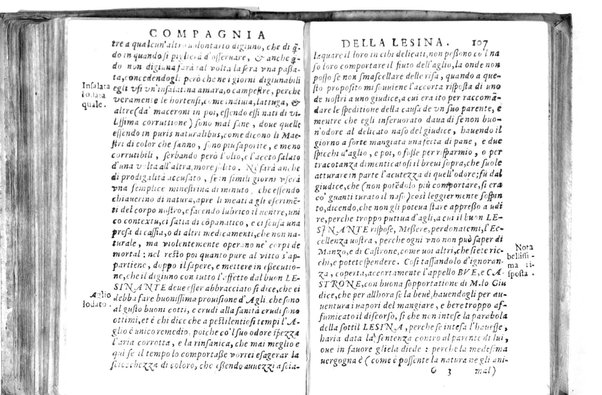 COMPAGNIA
tre a qualcun'altro uolontario digiuno, che di q̃-
do in quando si piglierà d'osseruare, & anche q̃-
do non digiuna farà tal uolta la sera una passa-
ta, concedendogli però che ne i giorni digiunabili
egli usi un'insalatina amara, o campestre, perche
ueramente le hortensi, come natura, lattuga, &
altre (da maceroni in poi, essendo essi nati di ui-
lissima corruttione) sono mal sane, doue quelle
essendo in puris naturalibus, come dicono li Mae-
stri di color che sanno, sono piu saporite, e meno
corrutibili, serbando però l'olio, e l'aceto salato
d'una uolta all'altra, more solito. Ne sarà anche
di prodigalità accusato, se in simili giorni userà
una semplice minestrina di minuto, che essendo
chiauerino di natura, apre li meati a gli escrimē-
ti del corpo nostro, facendo lubrico il uentre, uni
co contextu, che ci satia a compatico, e ci scusa una
presa di cassia, o di altri medicamenti, che non na-
turale, ma uiolentemente operano ne' corpi de
mortali; nel resto poi quanto pure al uitto s'ap-
partiene, doppo il sapere, e mettere in essecutio-
ne, che il digiuno con tutto l'effetto dal buon LE-
SINANTE deue esser abbracciato si dice, che ei
debba fare buonissima prouisione d'Agli, che sono
al gusto buoni cotti, e crudi alla sanità crudi sono
ottimi, et è chi dice che a pestilentiosi tempi l'A-
glio è unico remedio, poiche cõ'l suo odore spezza
l'aria corrotta, e la rinsanica, che mai meglio e
qui se il tempo comportasse uorrei esagerar la
sciocchezza di coloro, che essendo auuezzi a scia-
Insalata
lodata
quale.
Aglio
lodato.
DELLA LESINA. 107
lequare il loro in cibi delicati, non possono co'l na
so loro comportare il fiuto dell'aglio, la onde non
posso se non smascellare delle risa, quando a que-
sto proposito mi souuiene l'accorta risposta di uno
de nostri a uno giudice, a cui era ito per raccomā-
dare la speditione della causa de un suo parente, e
mentre che egli inferuorato daua di se non buon'-
odore al delicato naso del giudice, hauendo il
giorno a sorte mangiata una fetta di pane, e due
spicchi d'aglio, e poi, o fosse per risparmio, o per
tracotanza dimenticatosi il breui sopra, che suole
atturare in parte l'acutezza di quell'odore; fù dal
giudice, che (non potēdolo più comportare, si era
co' guanti turato il naso) così leggiermente sospin-
to, dicendo, che non gli potena stare appresso a udi
re, perche troppo putiua d'agli, a cui il buon LE-
SINANTE rispose, Messere, perdonatemi, l'Ec-
cellenza uostra, perche ogni uno non può saper di
Manzo, e di Castrone, come uoi altri, che siete ric
chi, e potete spendere. Così tassandolo d'ignoran-
za, coperta, accortamente l'appellò BVE, e CA-
STRONE, con buona sopportatione di M. lo Giu
dice, che per allhora se la beuè, hauendogli per au-
uentura i uapori del mangiare, e bere troppo af-
fumicato il discorso, si che non intese la parabola
della sottil LESINA, perche se intesa l'hauesse,
haria data la sentenza contro al parente di lui,
oue in fauore gliela diede: perche la medesima
uergogna è (come è possente la natura ne gli ani-
O 3 mal)
Nota
bellissi
ma ri-
sposta.